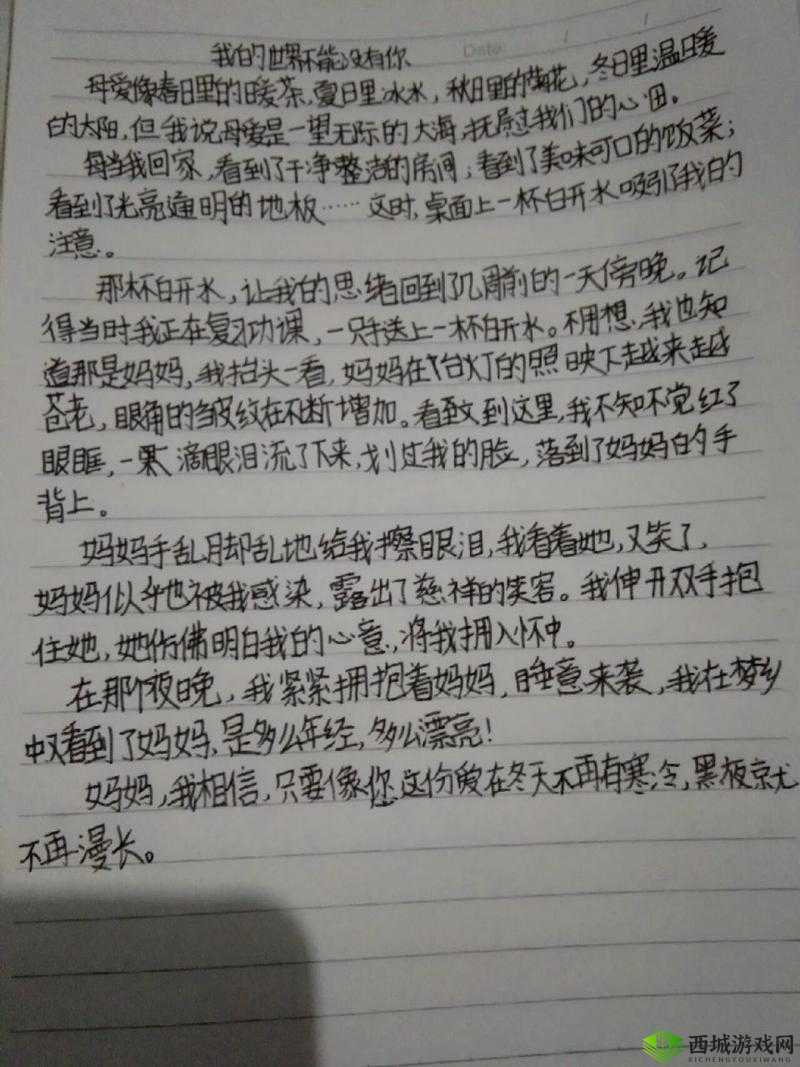 Date:
我的世界不能没有你
母爱像春日里的暖茶,夏日里冰水,秋日里的菊花,冬日里温暖
的太阳,但我说母爱是一望无际的大海,抚慰过我们的心田。
每当我回家,看到了干净整洁的房间;看到了美味可口的饭菜;
看到了光亮通明的地板……这时,桌面上一杯白开水吸引了我的
注意。
那杯白开水,让我的思绪回到了几周前的一天傍晚。记
得当时我正在复习功课,一只手送上一杯白开水。不用想,我也知
道那是妈妈,我抬头一看,妈妈在台灯的照映下越来越
苍老,眼角的皱纹在不断增加。看到这里,我不知不觉红了
眼眶,一滴眼泪流了下来,划过我的脸,落到了妈妈的手
背上。
妈妈手乱脚乱地给我擦眼泪,我看着她,又笑了,
妈妈似乎也被我感染,露出了慈祥的笑容。我伸开双手抱
住她,她仿佛明白我的心意,将我拥入怀中。
在那个夜晚,我紧紧拥抱着妈妈,睡意来袭,我在梦乡
中又看到了妈妈,是多么年经,多么漂亮!
妈妈,我相信,只要像您这份爱在冬天不再有寒冷,黑板就
不再漫长。
西城游戏网
XICHENGYOUXIWANG